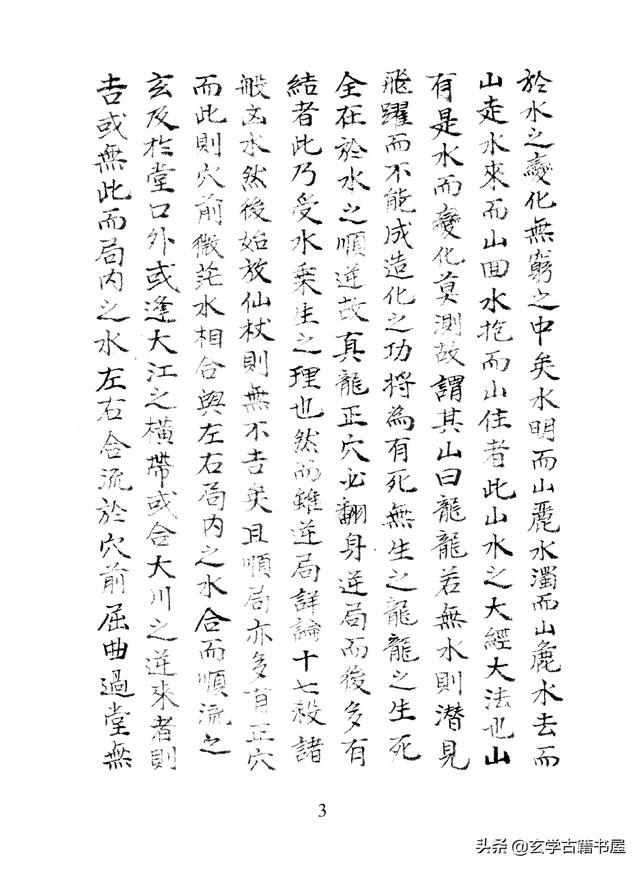 於水之變化無窮之中矣水明而山麗水濁而山麁水去而
山走水來而山回水抱而山住者此山水之大經大法也山
有是水而變化莫測故謂其山曰龍龍若無水則潛見
飛躍而不能成造化之功將為有死無生之龍龍之生死
全在於水之順逆故真龍正穴必翻身逆局而後多有
結者此乃受水乗生之理也然而雖逆局詳論十七殺諸
般凶水然後始放仙杖則無不吉矣且順局亦多有正穴
而此則穴前微茫水相合與左右局内之水合而順流之
玄及於堂口外或逢大江之横帶或合大川之逆來者則
吉或無此而局内之水左右合流於穴前屈曲過堂無
3
头条@玄学古籍书屋